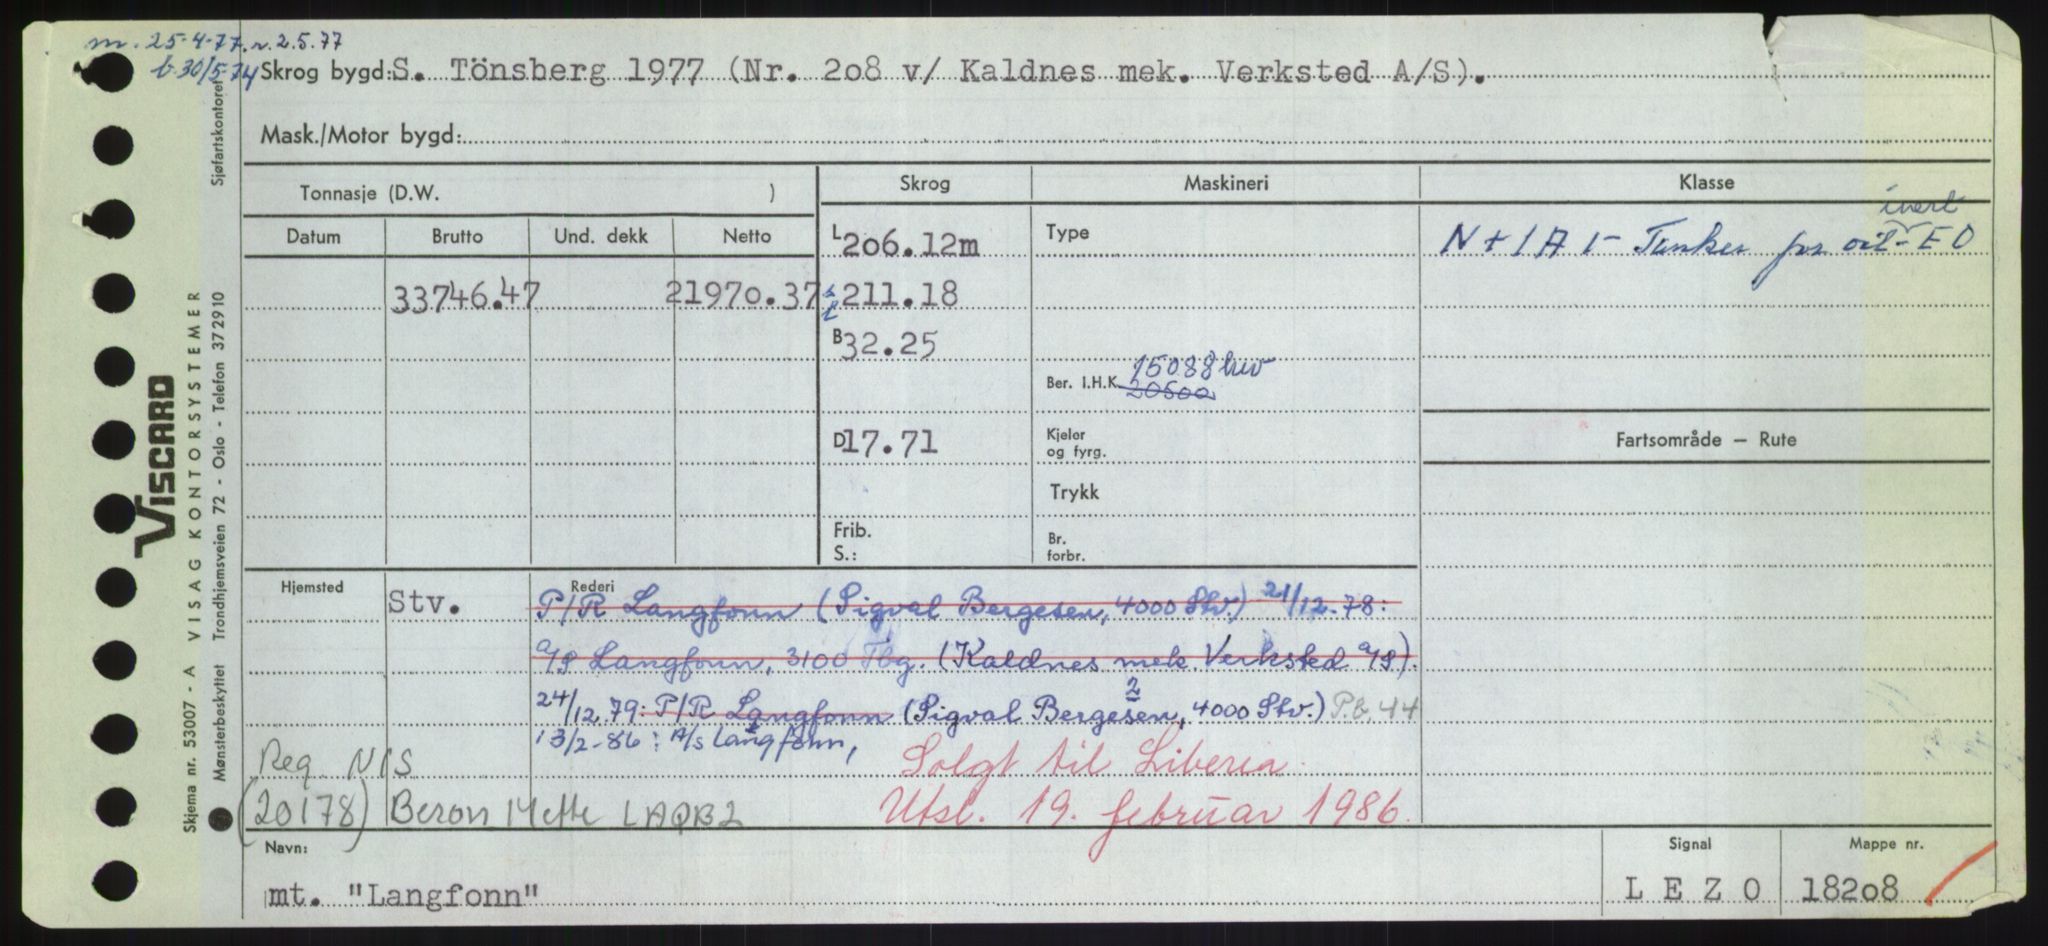 m. 25-4-77. r. 2.5.77
b 30/5-74 Skrog bygd: S. Tönsberg 1977 (Nr. 208 v/ Kaldnes mek. Verksted A/S).
Mask./Motor bygd:
Tonnasje (D.W. ) Skrog Maskineri Klasse
Datum Brutto Und. dekk Netto L 206.12m Type N + 1 A 1 - Tanker for oil - E O
inert
33746.47 21970.37 211.18
B 32.25
Ber. I.H.K. 15088 kw
20500
D 17.71 Kjeler og fyrg. Fartsområde – Rute
Trykk
Frib. S.: Br. forbr.
Hjemsted Stv. Rederi P/R Langfonn (Sigval Bergesen, 4000 Stv.) 21/12-78:
A/S Langfonn, 3100 Tbg. (Kaldnes mek. Verksted A/S).
24/12.79: P/R Langfonn (Sigval Bergesen, 4000 Stv.) P.b. 44
2
13/2-86: A/S Langfonn,
Reg. NIS Solgt til Liberia.
(20178) Beron Mette LAQB2 Utsl. 19. februar 1986.
Navn: Signal Mappe nr.
mt. "Langfonn" L E Z O 18208
VISCARD
Skjema nr. 53007 - A VISAG KONTORSYSTEMER
Mønsterbeskyttet Trondhjemsveien 72 - Oslo - Telefon 372910 Sjøfartskontoret